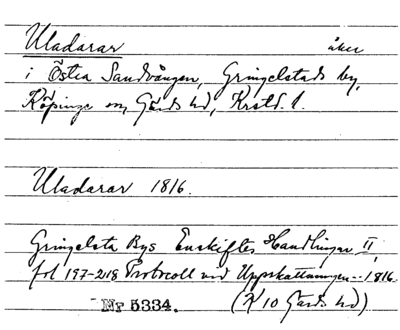 Uladarar åker
i Östra Sandvången, Gringelstads by,
Köpinge sn, Gärds hd, Krstd. l.
Uladarar 1816.
Gringelsta Bys Enskiftes Handlingar II,
fol 197-218 Protocoll vid Uppskattningen -- 1816.
Nr 5334. (K 10 Gärds hd)